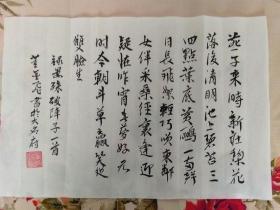 燕子來時新社梨花
落後清明池上碧苔三
四點葉底黃鸝一兩聲
日長飛絮輕巧笑東鄰
女伴采桑徑裏逢迎
疑怪昨宵春夢好元
是今朝鬥草贏笑從
雙臉生
錄晏殊破陣子一首
書於大